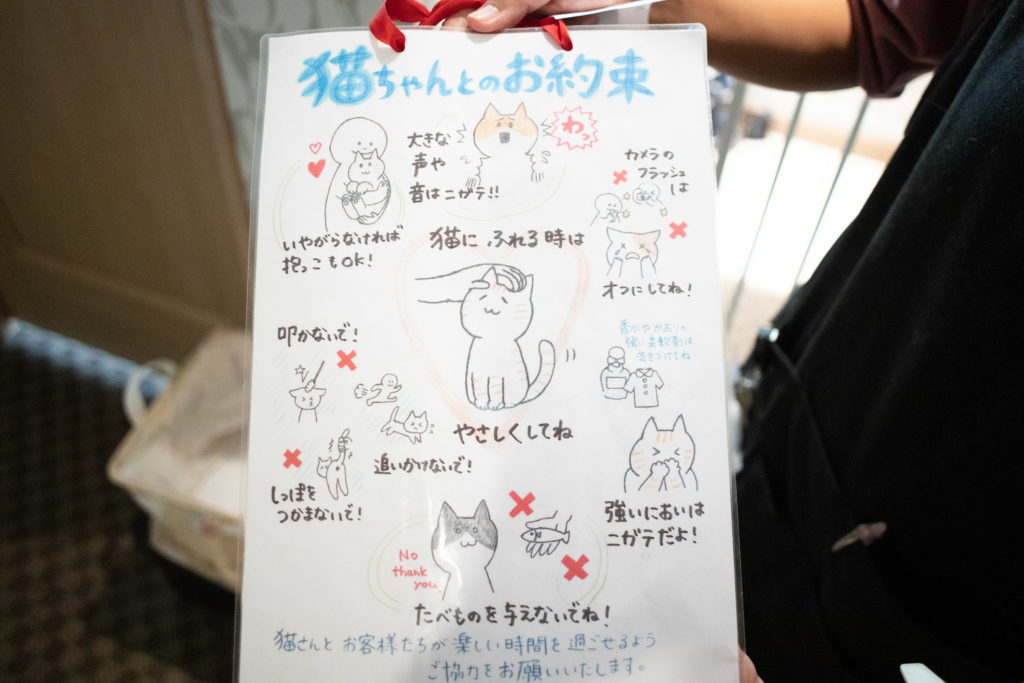 猫ちゃんとのお約束
大きな
声や
音はニガテ!!
わっ
カメラの
フラッシュ
は
オフにしてね!
いやがらなければ
抱っこもOK!
猫にふれる時は
やさしくしてね
香水やかおりの
強い柔軟剤は
気をつけてね
強いにおいは
ニガテだよ!
叩かないで!
追いかけないで!
しっぽを
つかまないで!
No
thank
you
たべものを与えないでね!
猫さんとお客様たちが楽しい時間を過ごせるよう
ご協力をお願いいたします。